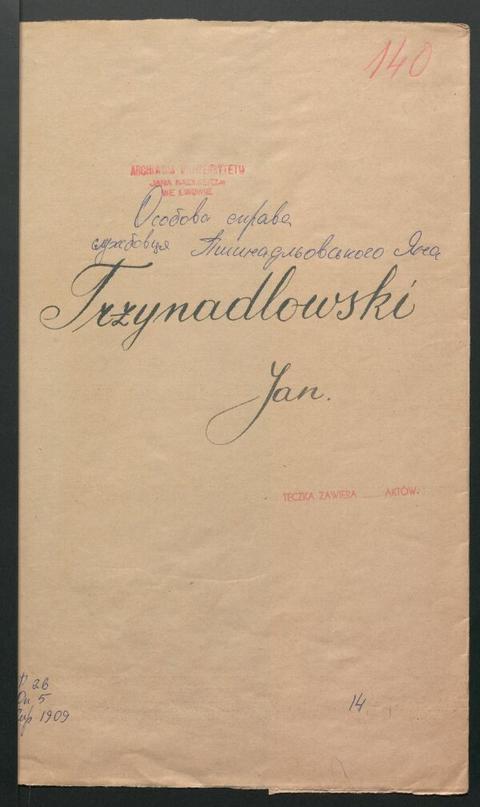 140
ARCHIWUM UNIWERSYTETU
JANA KAZIMIERZA
WE LWOWIE
Особова справа
службовця Тшинадльовського Яна
Trzynadlowski
Jan.
TECZKA ZAWIERA ...... AKTÓW.
26
Оп 5
1909
14